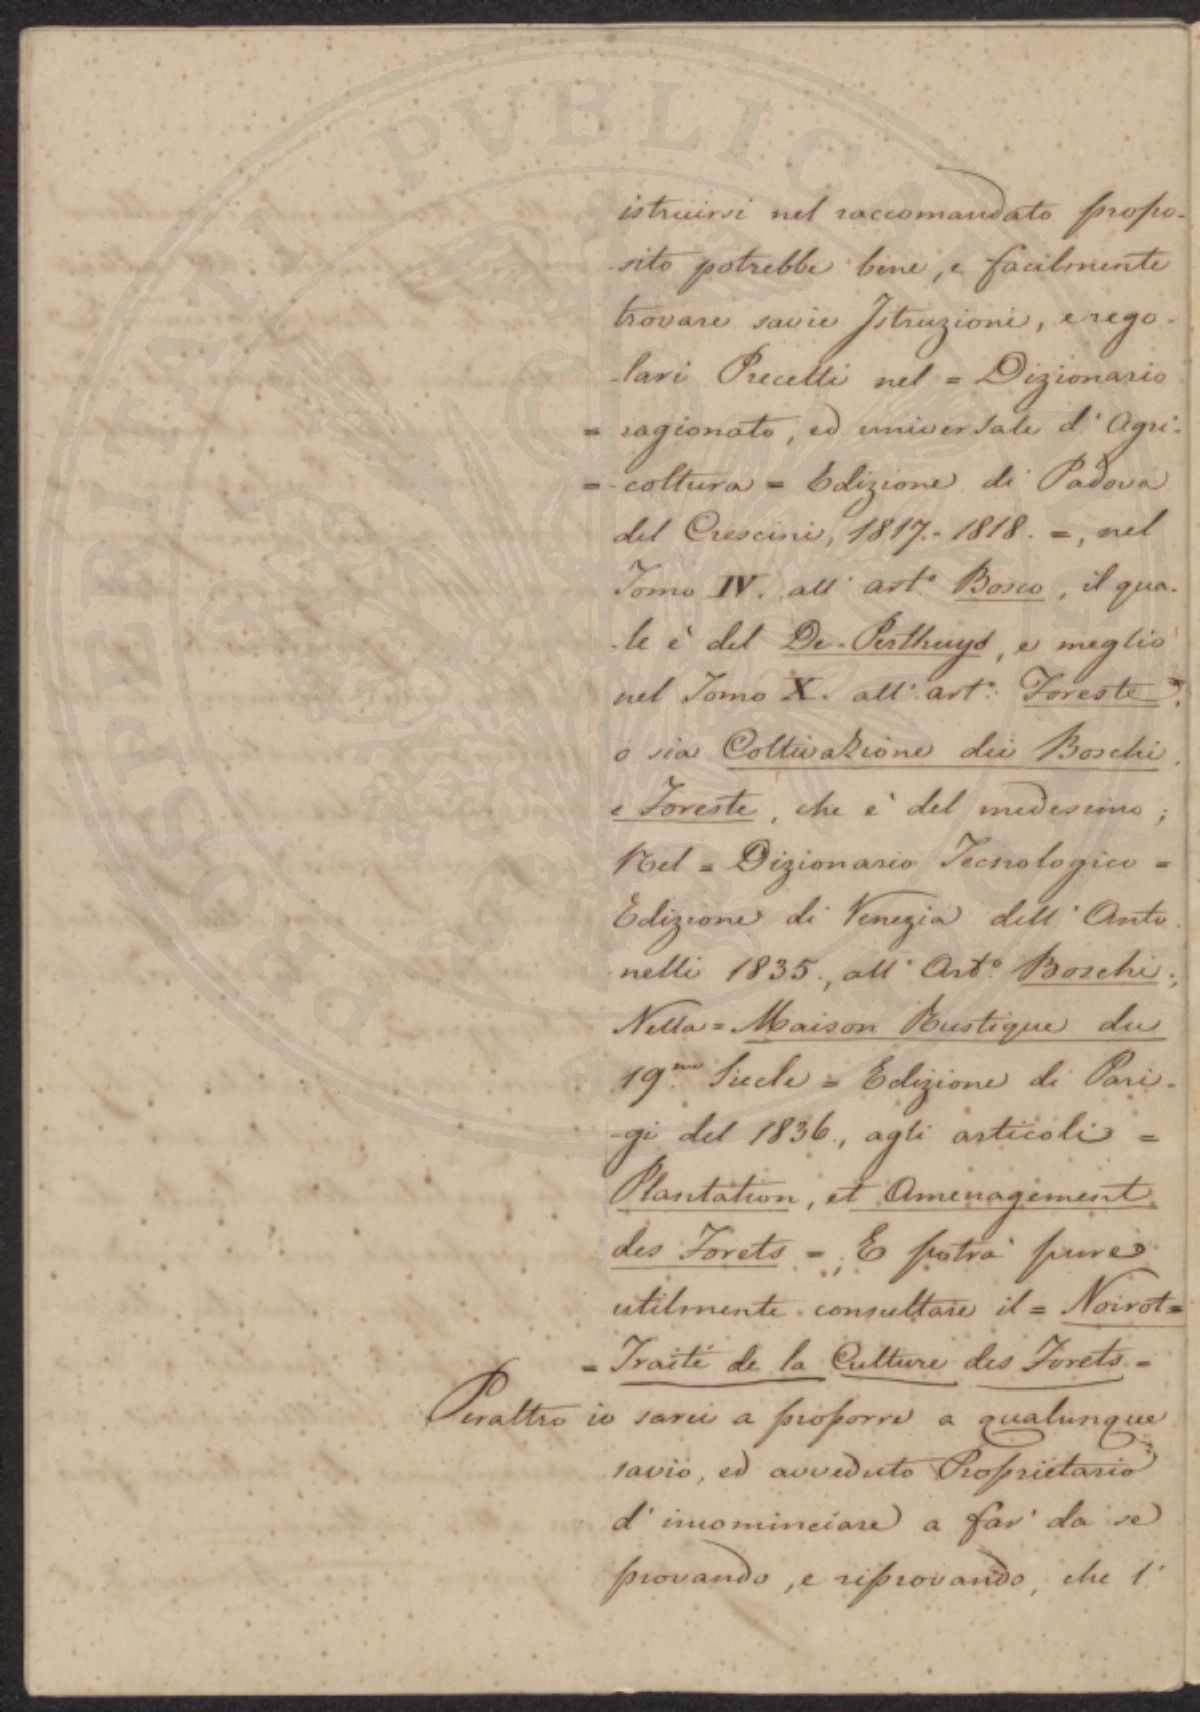 istruirsi nel raccomandato propo-
-sito potrebbe bene, e facilmente
trovare savie Istruzioni, e rego-
-lari Precetti nel = Dizionario
= ragionato, ed universale d'Agri-
= -coltura = Edizione di Padova
del Crescini, 1817.-1818. =, nel
Tomo IV. all' art.º Bosco, il qua-
-le è del De-Perthuys, e meglio
nel Tomo X. all' art.º Foreste,
o sia Coltivazione dei Boschi,
e Foreste, che è del medesimo;
Nel = Dizionario Tecnologico =
Edizione di Venezia dell' Anto-
nelli 1835., all' Art.º Boschi;
Nella = Maison Rustique du
19.me Siecle = Edizione di Pari-
-gi del 1836., agli articoli =
Plantation, et Amenagement
des Forets =; E potrà pure
utilmente consultare il = Noirot =
= Traité de la Culture des Forets =
Peraltro io sarei a proporre a qualunque
savio, ed avveduto Proprietario
d' incominciare a far' da se
provando, e riprovando, che l'
PROSPERITATI PVBLICAE